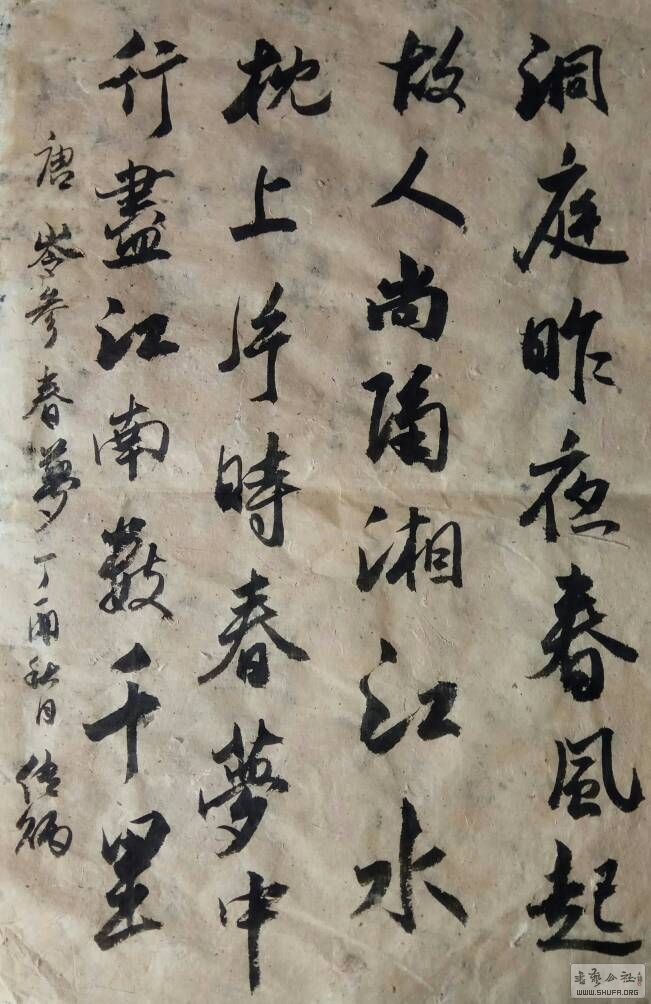 洞庭昨夜春風起
故人尚隔湘江水
枕上片時春夢中
行盡江南數千里
唐岑參春夢丁酉秋日
書藝公社
WWW.SHUFA.ORG